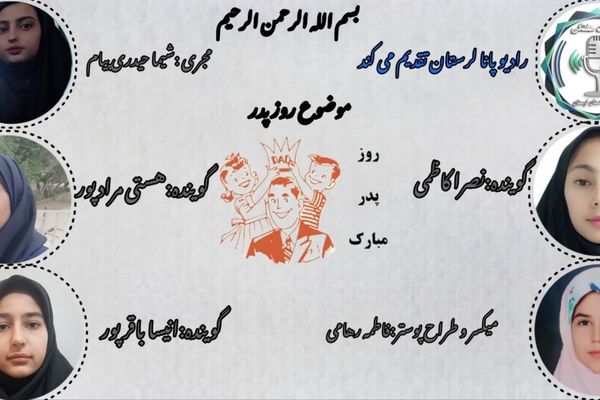 بسم الله الرحمن الرحیم
رادیو پانا لرستان تقدیم می کند
مجری : شیما حیدری پیام
موضوع روز پدر
DAD
روز
پدر
مبارک
گوینده: نصرا کاظمی
گوینده: هستی مرادپور
میکسر و طراح پوستر: فاطمه رهامی
گوینده: انیسا باقرپور